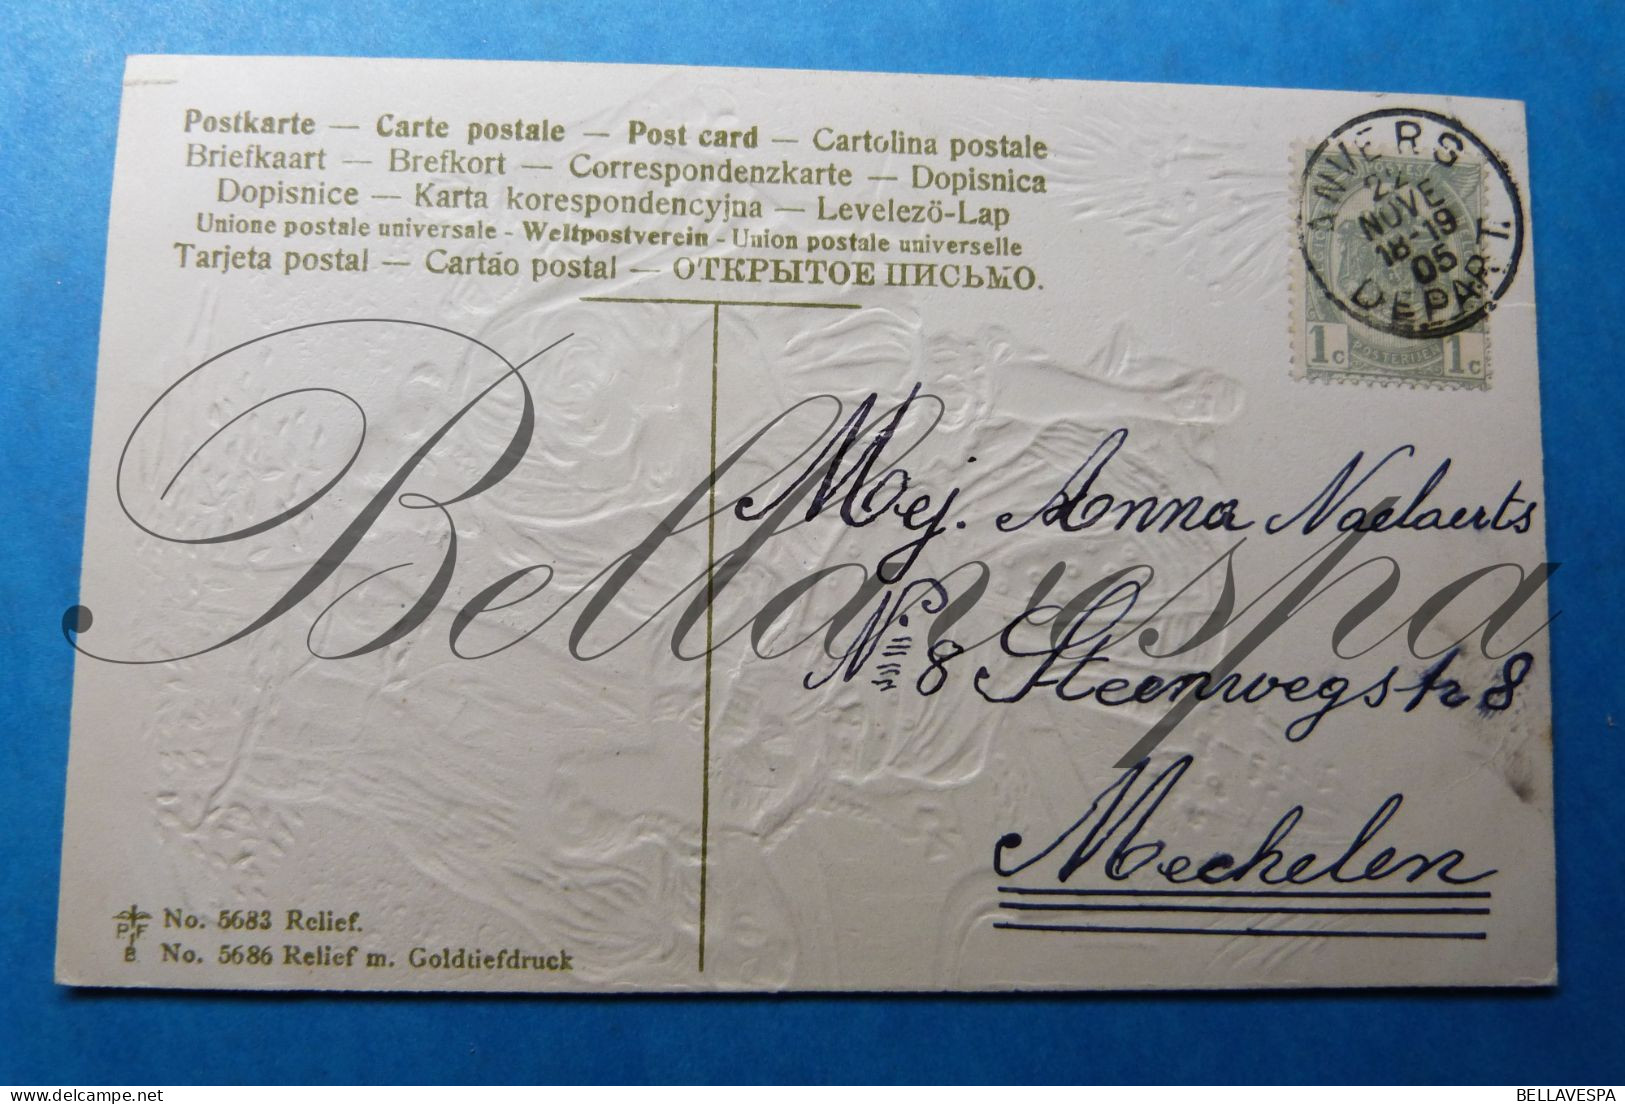 Postkarte — Carte postale — Post card — Cartolina postale
Briefkaart — Brefkort — Correspondenzkarte — Dopisnica
Dopisnice — Karta korespondencyjna — Levelező-Lap
Unione postale universale - Weltpostverein - Union postale universelle
Tarjeta postal — Cartáo postal — ОТКРЫТОЕ ПИСЬМО.
ANVERS
NOVE
18-19
05
DEPART.
1c POSTERIJEN 1c
Mej. Anna Naelaerts
N. 8 Steenwegstr 8
Mechelen
Bellavespa
PFB
No. 5683 Relief.
No. 5686 Relief m. Goldtiefdruck
BELLAVESPA